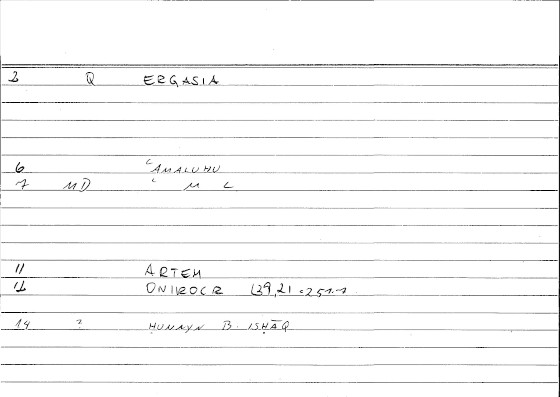 2 Q ERGASIA
6 ʿAMALUHU
7 MD ʿ M L
11 ARTEM
12 ONIROCR 139,21 = 251.1
14 ? ḤUNAYN B. ISḤĀQ